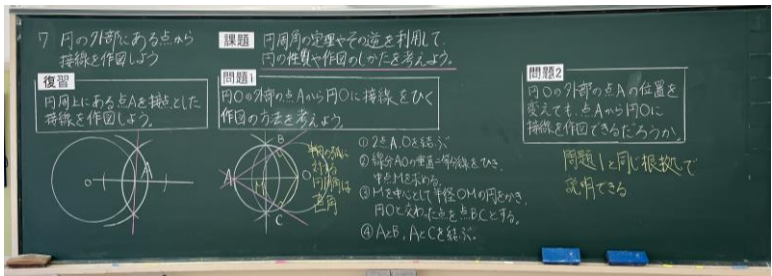 7 円の外部にある点から
接線を作図しよう
課題
円周角の定理やその逆を利用して、
円の性質や作図のしかたを考えよう。
復習
円周上にある点Aを接点とした
接線を作図しよう。
O
A
問題1
円Oの外部の点Aから円Oに接線をひく
作図の方法を考えよう。
A
B
M
O
C
半円の弧に
対する
円周角は
直角
① 2点A、Oを結ぶ
② 線分AOの垂直二等分線をひき、
中点Mを求める。
③ Mを中心として半径OMの円をかき、
円Oと交わった点を点BCとする。
④ AとB、AとCを結ぶ。
問題2
円Oの外部の点Aの位置を
変えても、点Aから円Oに
接線を作図できるだろうか。
問題1と同じ根拠で
説明できる